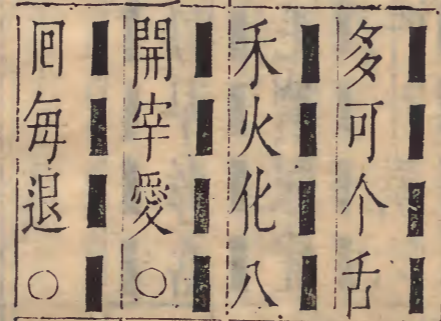 多可个舌
禾火化八
開宰愛○
囘每退○